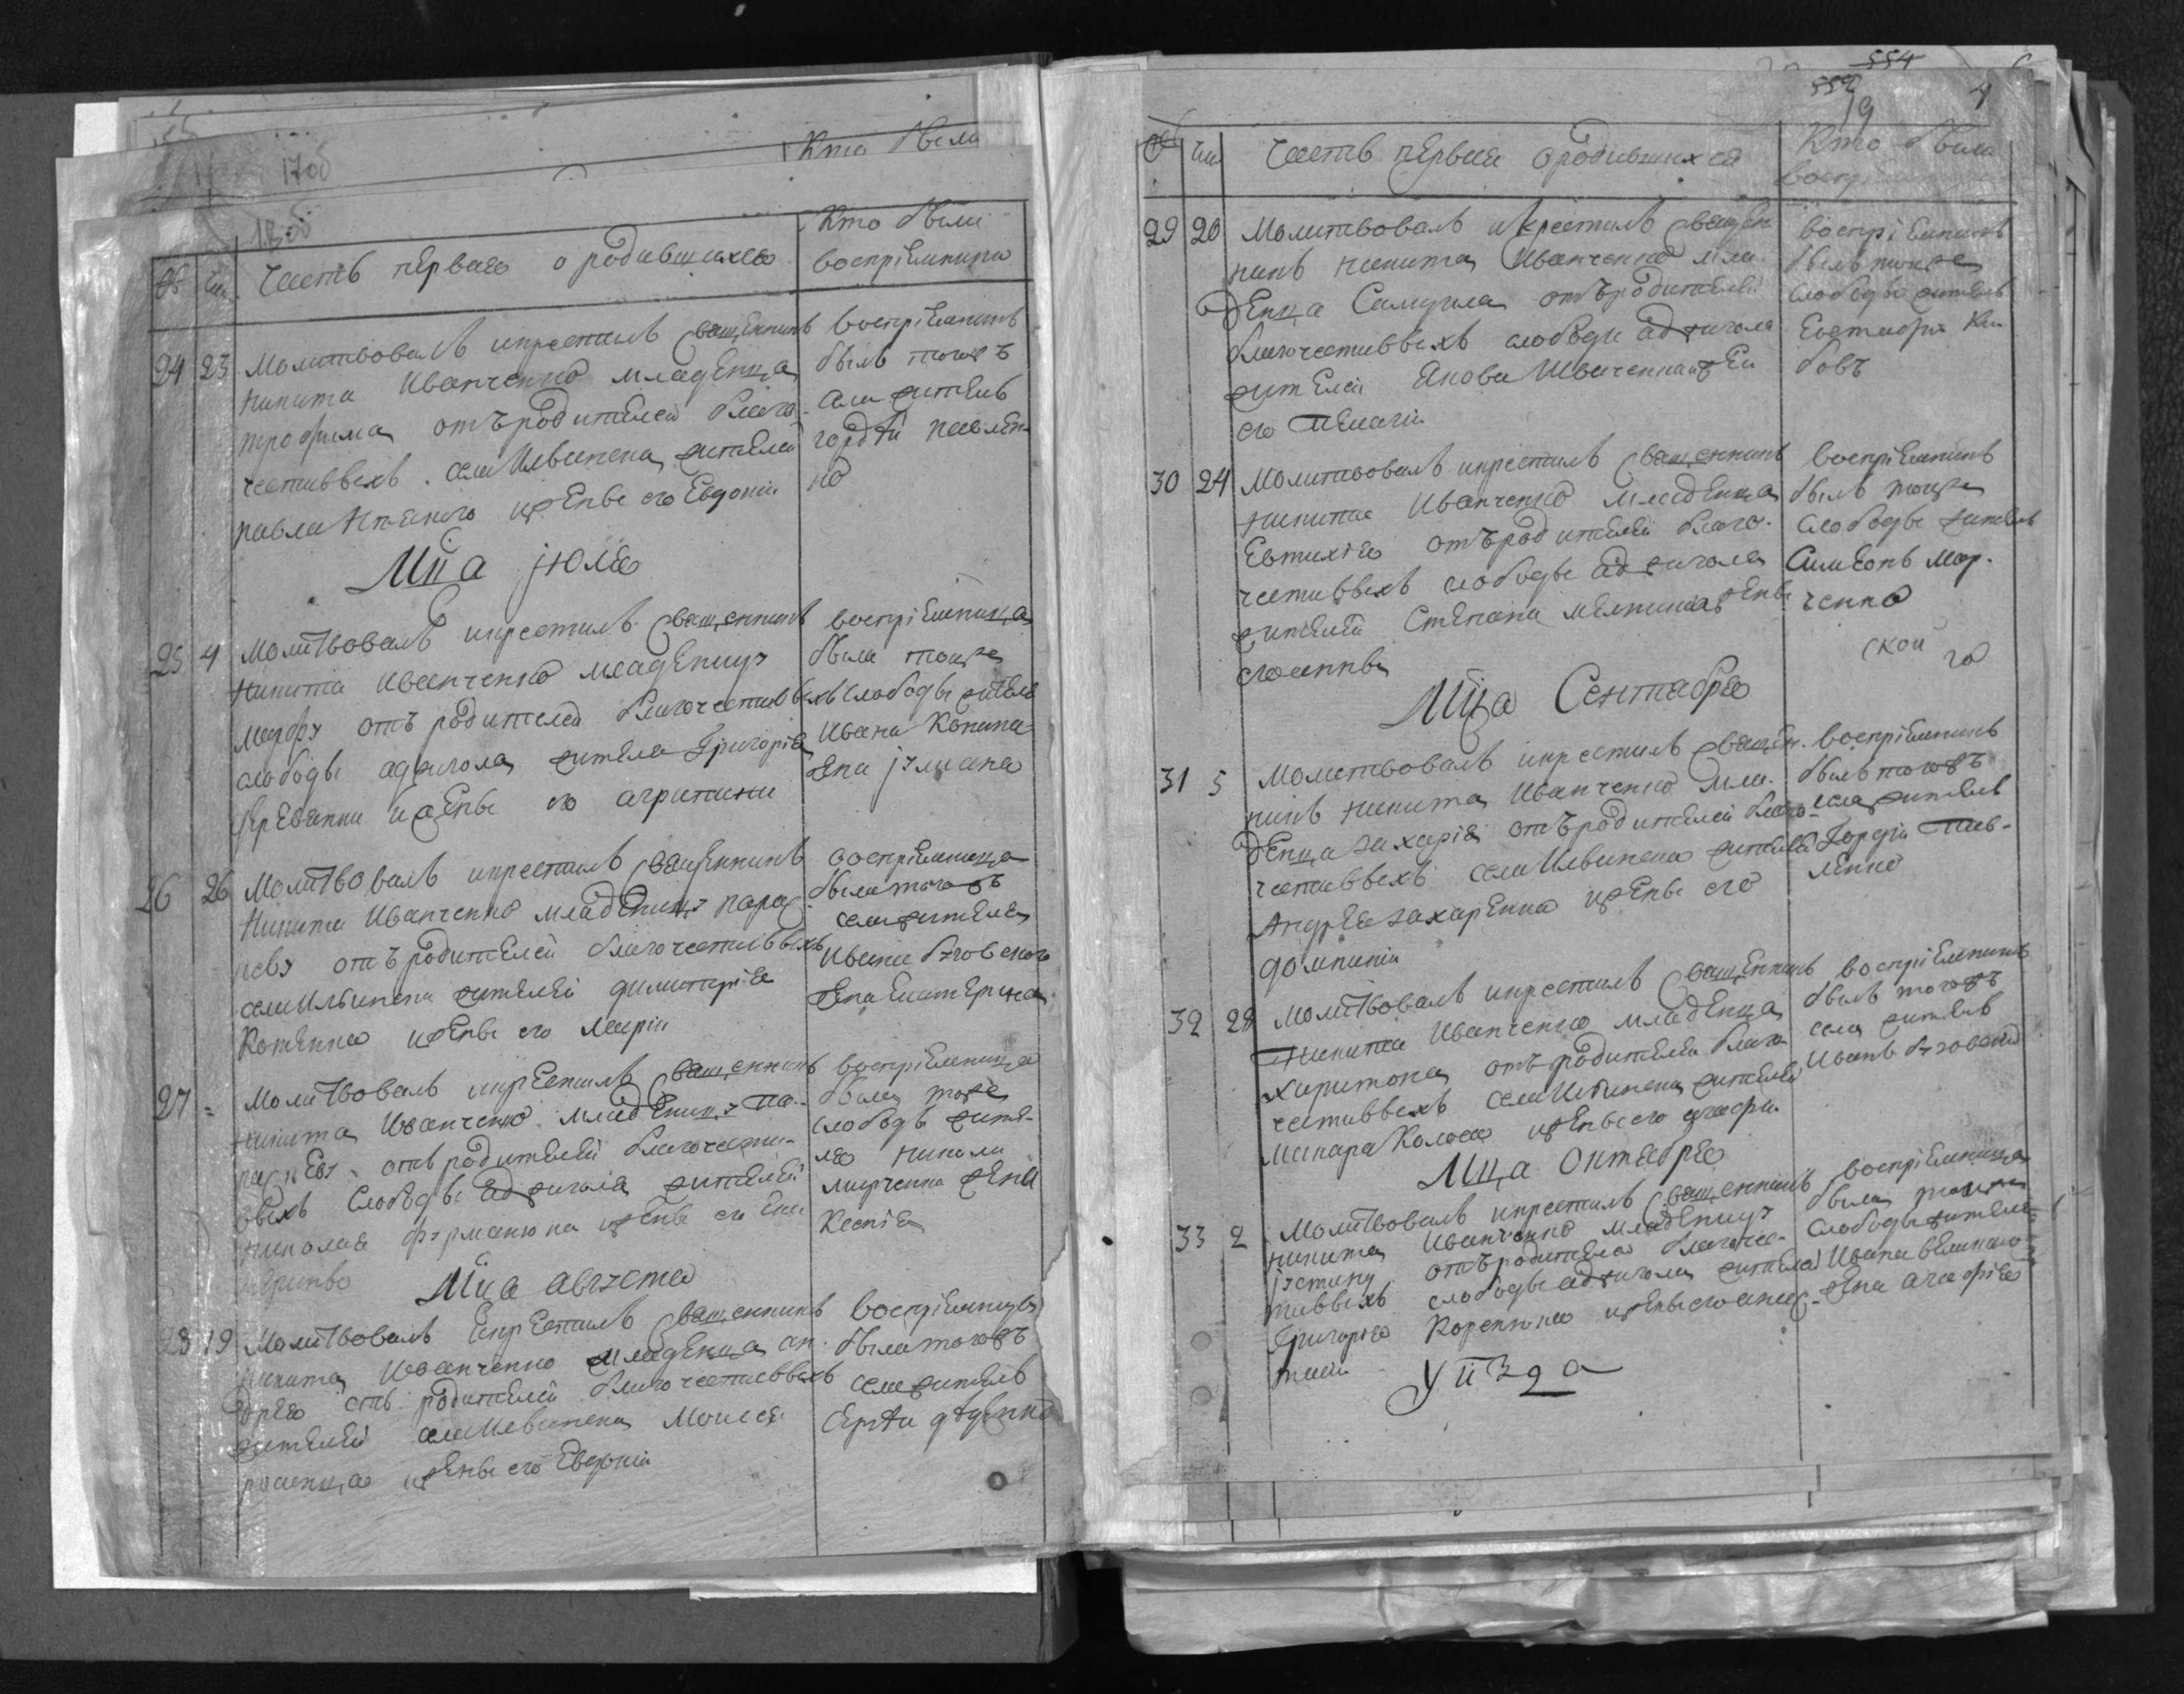 Кто были
17об
18об
№ Чи. Часть первая о родившихся
Кто были
воспріемники
24 23 Молитвовалъ и крестилъ священникъ
Никита Иванченко младенца
трофима отъ родителей благо-
честивыхъ села Илвинска жителей
павла и жены его Евдокіи
воспріемникъ
былъ того жъ
села житель
гордѣй павлен-
ко
Мца Июля
25 4 Молитвовалъ и крестилъ священникъ
Никита Иванченко младенцу
марфу отъ родителей благочестивыхъ
слободы аджигола жителя Григорія
и жены его агрипини
воспріемница
была тоя же
слободы жителя
Ивана
жена Iулиана
26 26 Молитвовалъ и крестилъ священникъ
Никита Иванченко младенцу парас-
кеву отъ родителей благочестивыхъ
села Илвинска жителей димитрія
Котенка и жены его Маріи
воспріемница
была того жъ
села жителя
Ивана бузовского
жена Екатерина
27 = Молитвовалъ и крестилъ священникъ
Никита Иванченко младенцу па-
раскеву отъ родителей благочести-
выхъ слободы аджигола жителей
николая фурманюка и жены его Ека
терины
воспріемница
была тояже
слободы жите-
ля николи
марченка жена
Ксенія
Мца августа
28 19 Молитвовалъ и крестилъ священникъ
Никита Иванченко младенца ан-
дрея отъ родителей благочестивыхъ
жителей села Илвинска Моисея
и жены его Евдокіи
воспріемникъ
была того жъ
села житель
Сергѣй дяденко
554
552
19
4
№ Чи. Часть первая о родившихся
Кто были
воспріемники
29 20 Молитвовалъ и крестилъ священ-
никъ никита Иванченко мла-
денца Самуила отъ родителей
благочестивыхъ слободы аджигола
жителей Якова Иваченка и жены
его Пелагіи
воспріемникъ
былъ тояже
слободы житель
Евстафій Ка-
бовъ
30 24 Молитвовалъ и крестилъ священникъ
никита Иванченко младенца
Евтихія отъ родителей благо-
честивыхъ слободы аджигола
жителей Стефана мелника и жены
его анны
воспріемникъ
былъ тояже
слободы житель
Симеонъ мар-
ченко
ской
го
Мца Сентября
31 5 Молитвовалъ и крестилъ священ-
никъ никита Иванченко мла-
денца захарія отъ родителей благо-
честивыхъ села Илвинска жителей
Андрея захаренка и жены его
домникіи
воспріемникъ
былъ того жъ
села житель
Гордѣй Пав-
ленко
32 28 Молитвовалъ и крестилъ священникъ
никита Иванченко младенца
харитона отъ родителей благо
честивыхъ села Илвинска жителей
макара Колоса и жены его агафи.
воспріемникъ
былъ того жъ
села житель
Иванъ бузовскій
Мца Октября
33 2 Молитвовалъ и крестилъ священникъ
никита Иванченко младенцу
Iустину отъ родителей благочес-
тивыхъ слободы аджигола жителей
Григорія Коренюка и жены его анас-
тасіи
воспріемница
была тояже
слободы жителя
Ивана великаго
жена агафія